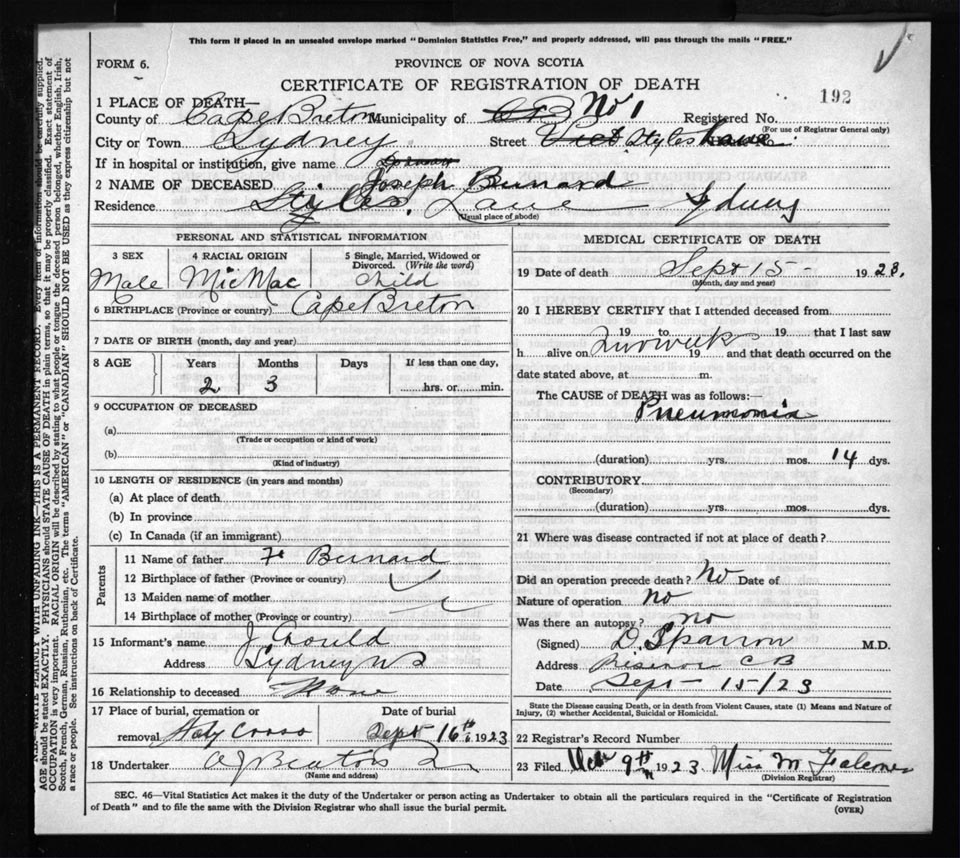 This form if placed in an unsealed envelope marked "Dominion Statistics Free," and properly addressed, will pass through the mails "FREE."
FORM 6.
PROVINCE OF NOVA SCOTIA
CERTIFICATE OF REGISTRATION OF DEATH
192
1 PLACE OF DEATH—
County of Cape Breton Municipality of No 1 Registered No.
(For use of Registrar General only)
City or Town Sydney Street Styles Lane
If in hospital or institution, give name
2 NAME OF DECEASED Joseph Bernard
Residence Styles Lane Sydney
(Usual place of abode)
PERSONAL AND STATISTICAL INFORMATION
3 SEX
Male
4 RACIAL ORIGIN
MicMac
5 Single, Married, Widowed or Divorced. (Write the word)
Child
6 BIRTHPLACE (Province or country) Cape Breton
7 DATE OF BIRTH (month, day and year)
8 AGE
Years Months Days If less than one day,
2 3 hrs. or min.
9 OCCUPATION OF DECEASED
(a)
(Trade or occupation or kind of work)
(b)
(Kind of industry)
10 LENGTH OF RESIDENCE (in years and months)
(a) At place of death
(b) In province
(c) In Canada (if an immigrant)
Parents
11 Name of father Bernard
12 Birthplace of father (Province or country)
13 Maiden name of mother
14 Birthplace of mother (Province or country)
15 Informant's name J Gould
Address Sydney NS
16 Relationship to deceased None
17 Place of burial, cremation or
removal Holy Cross
Date of burial
Sept 16th 1923
18 Undertaker A J Beaton
(Name and address)
MEDICAL CERTIFICATE OF DEATH
19 Date of death Sept 15 - 1923.
(Month, day and year)
20 I HEREBY CERTIFY that I attended deceased from
19 to 19 that I last saw
h alive on 19 and that death occurred on the
date stated above, at m.
The CAUSE of DEATH was as follows:—
Pneumonia
(duration) yrs. mos. 14 dys.
CONTRIBUTORY
(Secondary)
(duration) yrs. mos. dys.
21 Where was disease contracted if not at place of death?
Did an operation precede death? No Date of
Nature of operation no
Was there an autopsy? no
(Signed) D. Sparrow M.D.
Address Reserve C B
Date Sept 15/23
State the Disease causing Death, or in death from Violent Causes, state (1) Means and Nature of
Injury, (2) whether Accidental, Suicidal or Homicidal.
22 Registrar's Record Number
23 Filed 9th 1923 Miss M Falconer
(Division Registrar)
SEC. 46—Vital Statistics Act makes it the duty of the Undertaker or person acting as Undertaker to obtain all the particulars required in the "Certificate of Registration
of Death" and to file the same with the Division Registrar who shall issue the burial permit.
(OVER)
WRITE PLAINLY WITH UNFADING INK—THIS IS A PERMANENT RECORD. Every item of information should be carefully supplied.
AGE should be stated EXACTLY. PHYSICIANS should STATE CAUSE OF DEATH in plain terms, so that it may be properly classified. Exact statement of
OCCUPATION is very important. RACIAL ORIGIN will be described by stating to what people or tongue the deceased person belonged, whether English, Irish,
Scotch, French, German, Russian, Ruthenian, etc. The terms "AMERICAN" or "CANADIAN" SHOULD NOT BE USED as they express citizenship but not
a race or people. See instructions on back of Certificate.